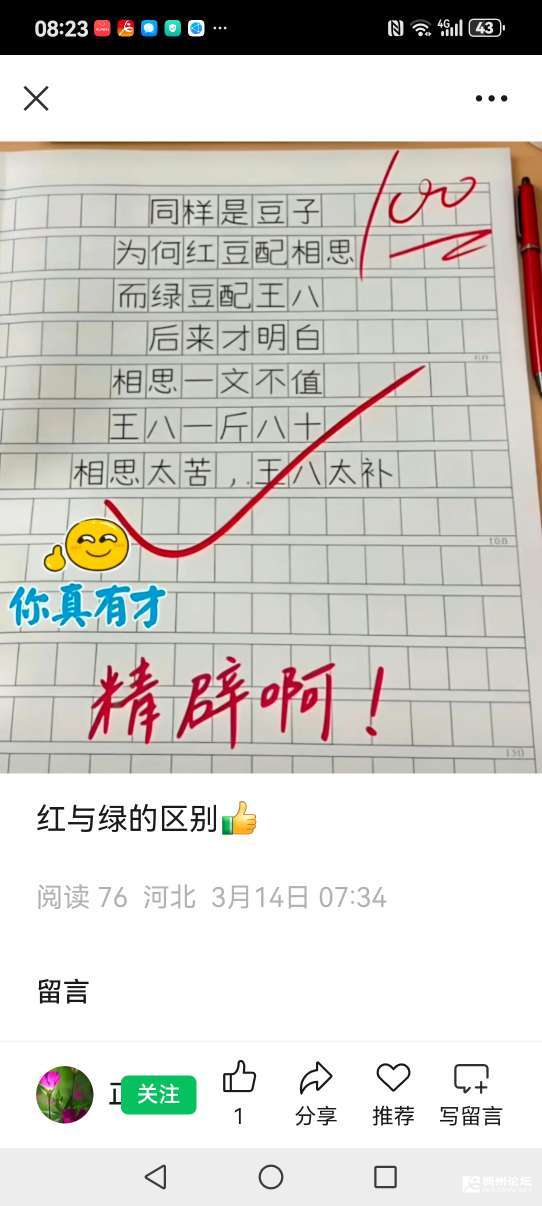 08:23
4G
43
100
同样是豆子
为何红豆配相思
而绿豆配王八
后来才明白
相思一文不值
王八一斤八十
相思太苦，王八太补
100
你真有才
精辟啊！
150
红与绿的区别👍
阅读 76 河北 3月14日 07:34
留言
关注
1
分享
推荐
写留言